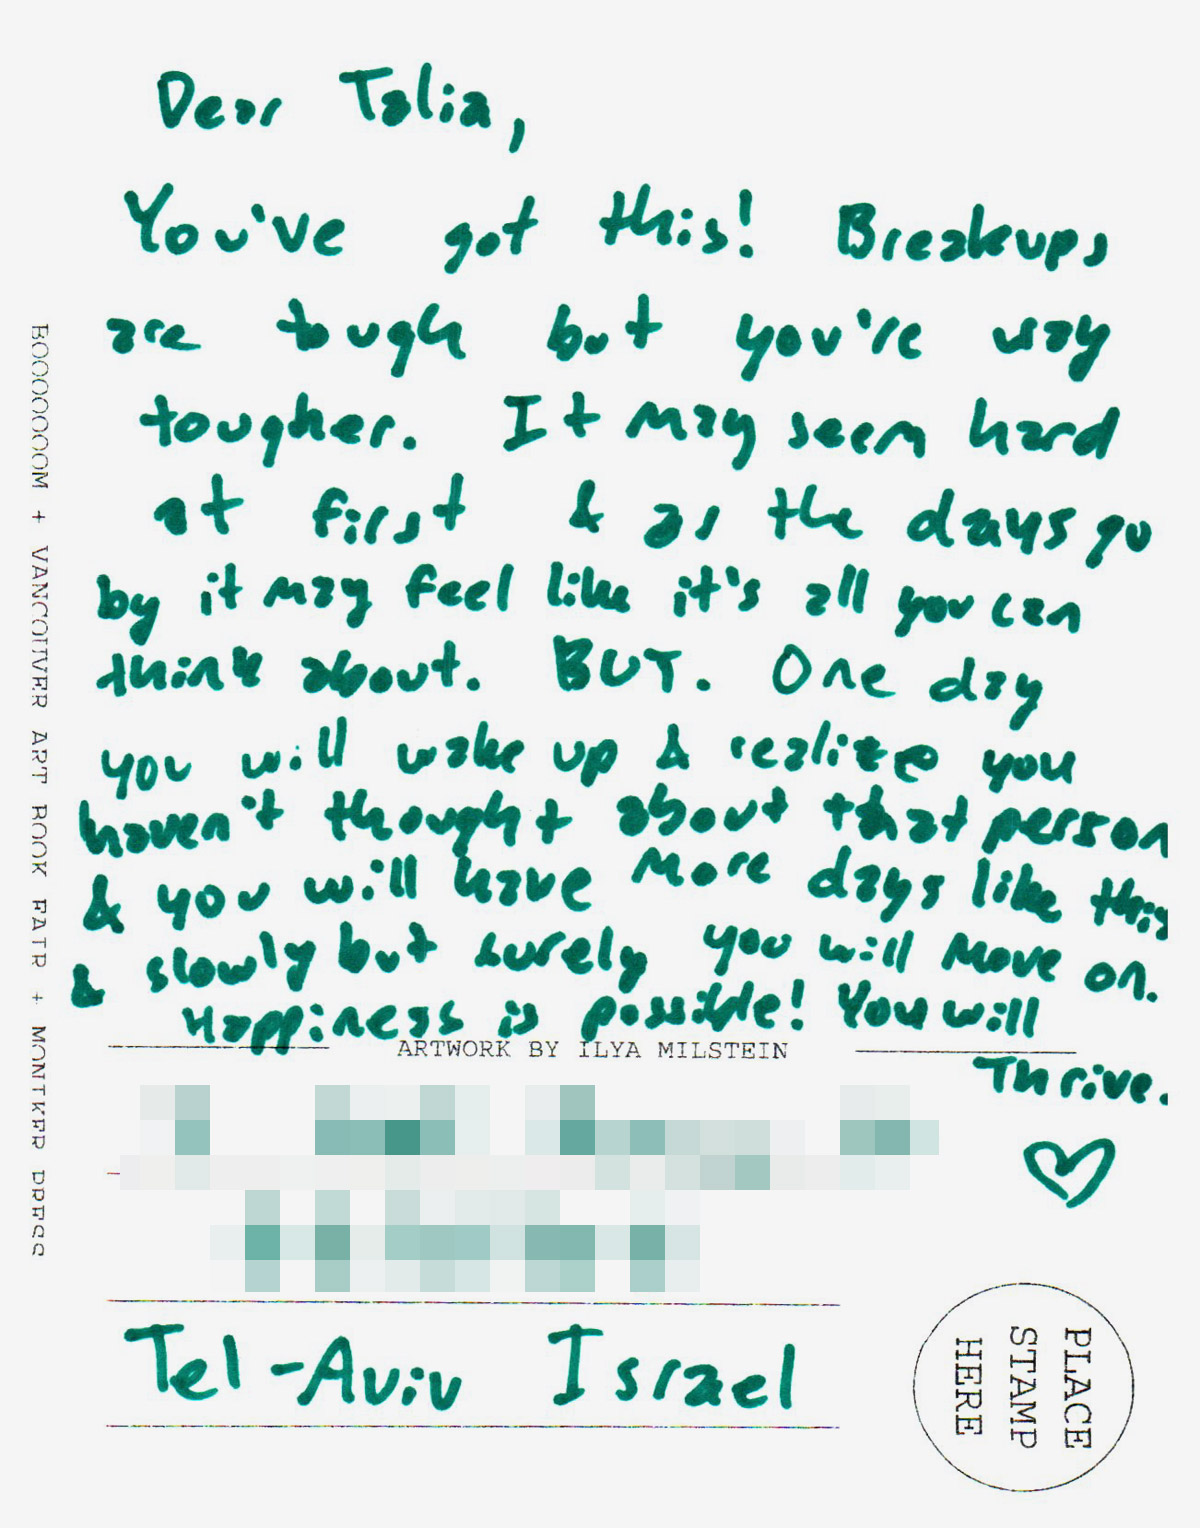 Dear Talia,
You've got this! Breakups
are tough but you're way
tougher. It may seem hard
at first & as the days go
by it may feel like it's all you can
think about. BUT. One day
you will wake up & realize you
haven't thought about that person
& you will have more days like this
& slowly but surely you will move on.
Happiness is possible! You will
Thrive.
ARTWORK BY ILYA MILSTEIN
Tel-Aviv Israel
PLACE
STAMP
HERE
BOOOOOOOM + VANCOUVER ART BOOK FAIR + MONIKER PRESS